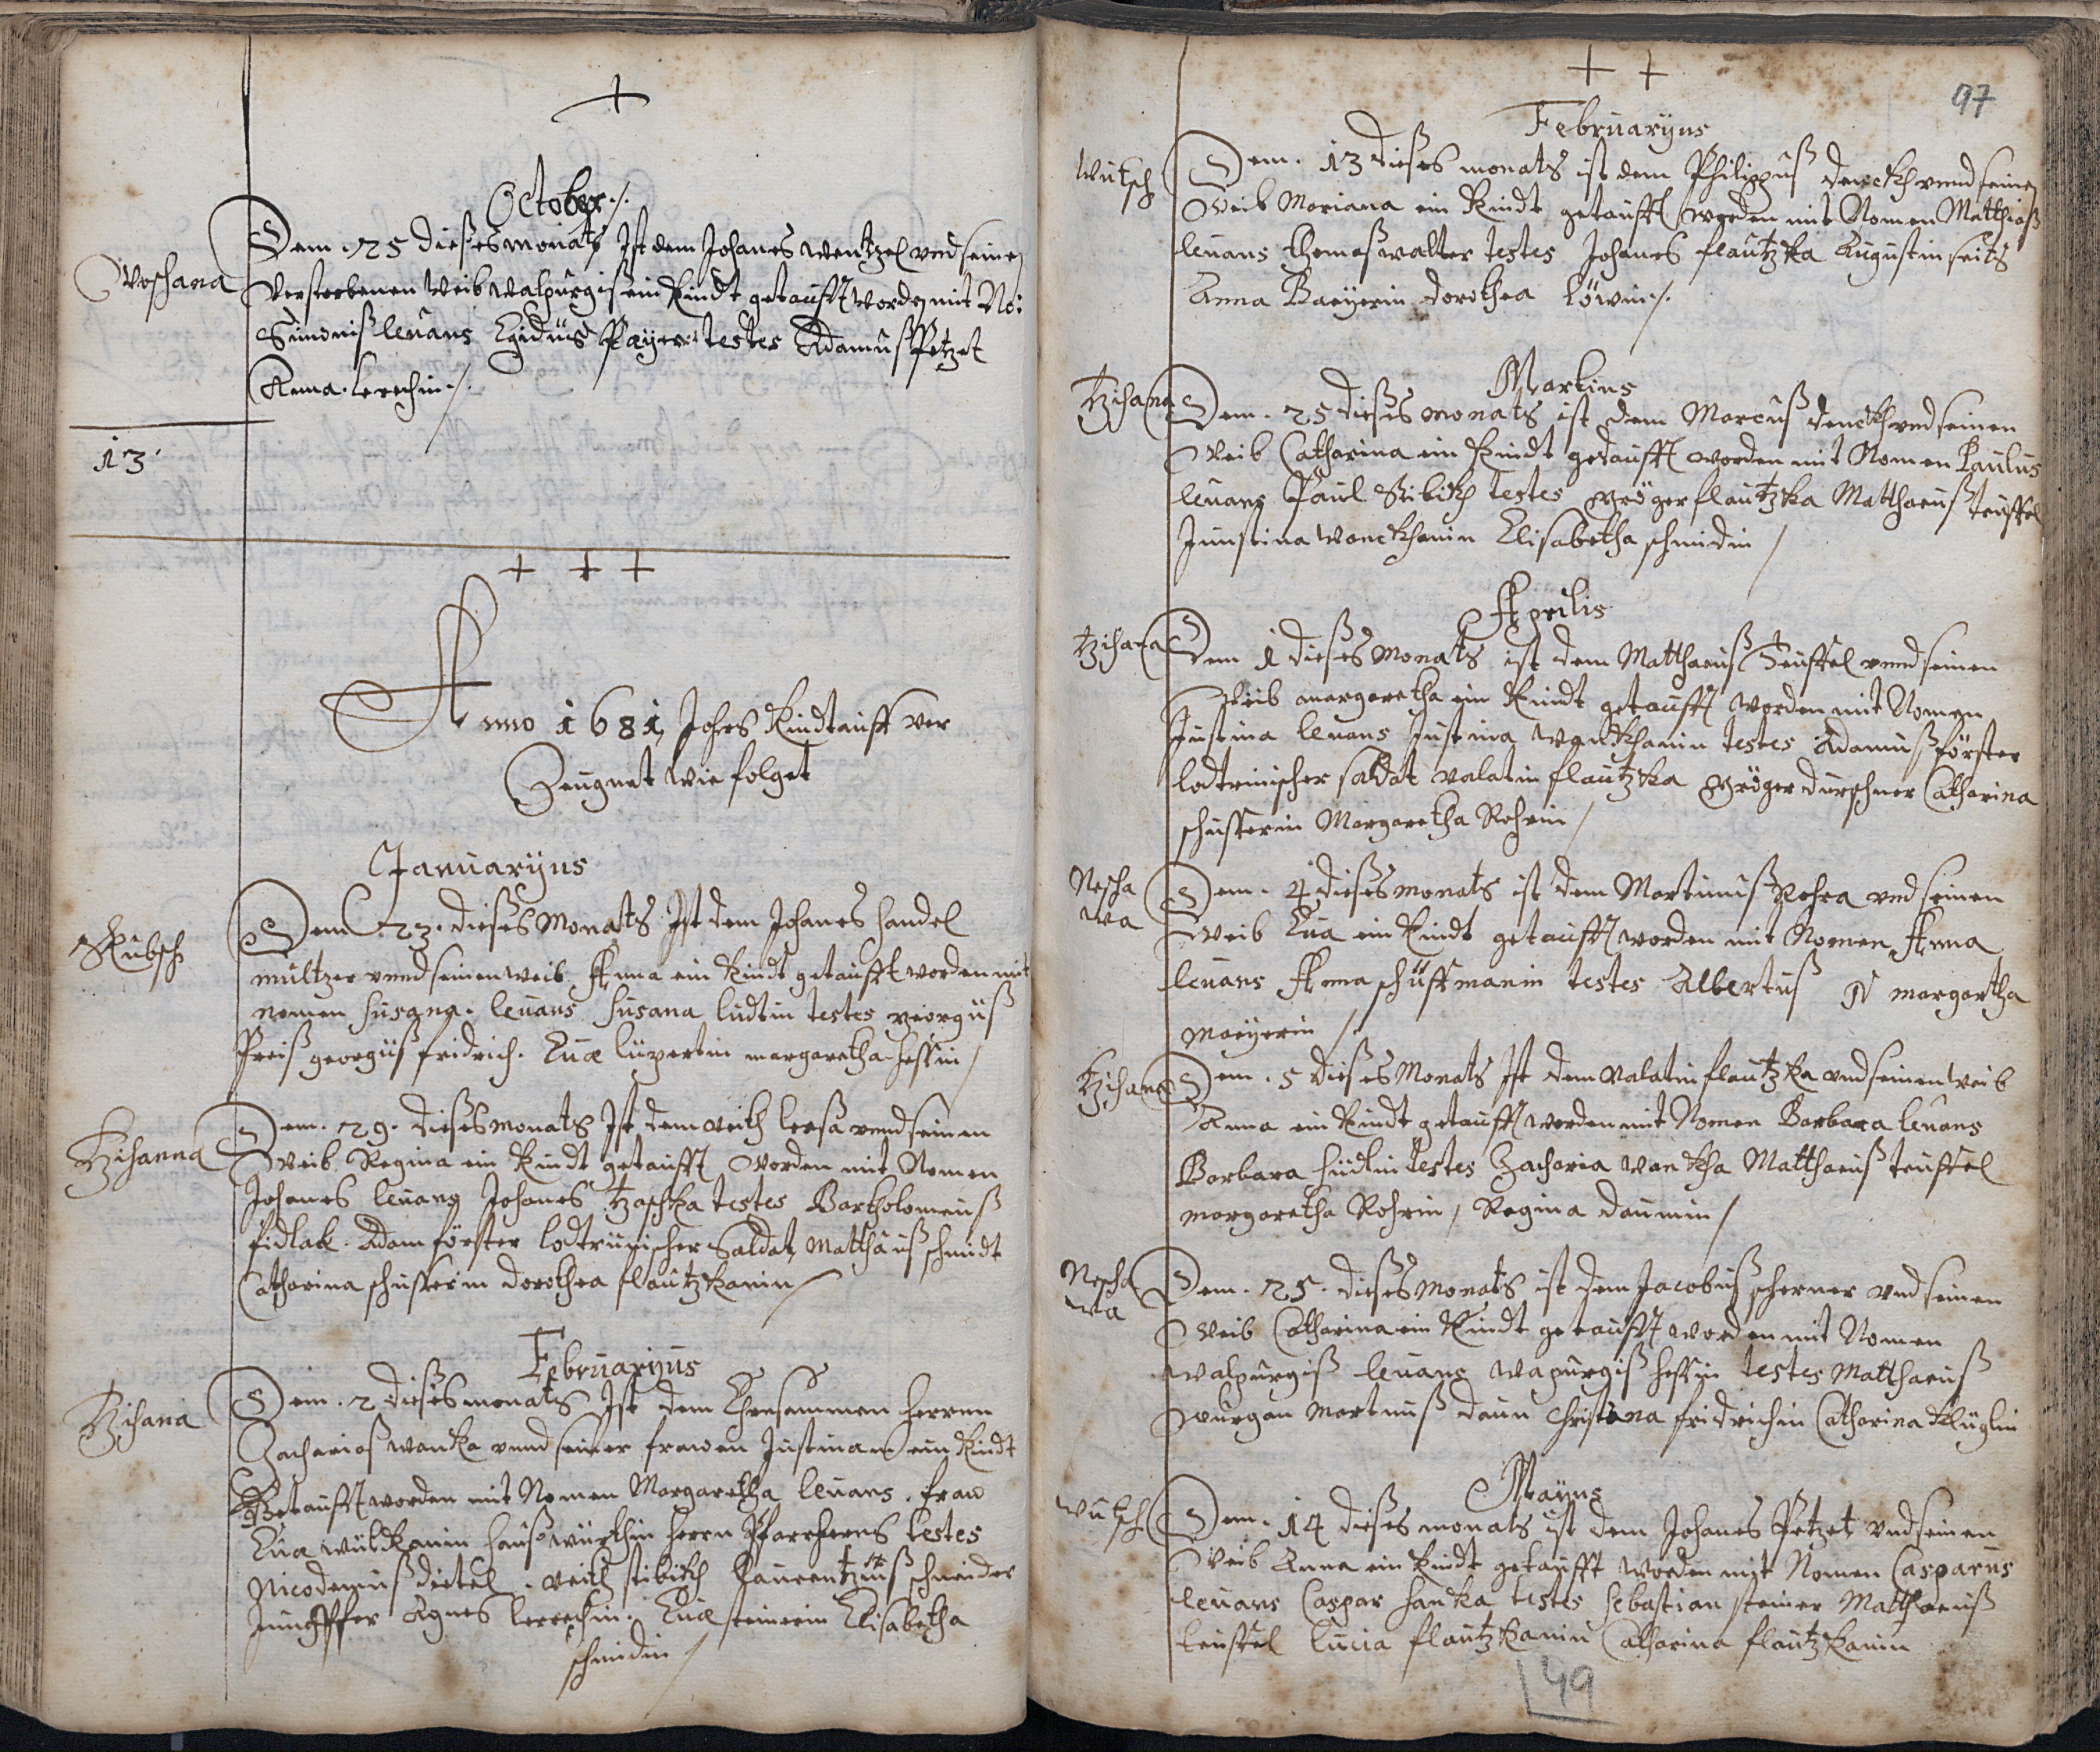 October ./.
Woschana
Dem . 25 dießes monats Ist dem Johanes wentzel vnd seine
Verstorbenen Weib walpurgis ein Kindt getaufft worden mit No:
Simonis leuans Egidius testes Adamuß Petzet
Anna . Lerchin ./.
13
Anno 1681 Johrs Kindtauff ver
Zeugnet wie folget
Januaryus
Kubsch
Dem 23. dieses Monats Ist dem Johanes handel
multzer vnnd seinen weib Anna ein Kindt getaufft worden mit
nomen Susana . leuans Susana ludtin testes georguß
Preiß georguß fridrich . Euæ lupertin margaretha hessin /
Tzihanna
Dem . 29 . dieses monats Ist dem veith lessa vnnd seinen
Weib Regina ein Kindt getaufft worden mit Nomen
Johanes leuans Johanes tzaschka testes Bartholomeuß
fidlak . Adam förster lodtrinischer Saldat Matthäuß schmidt
Catharina schusterin dorothea flautzkanin /
Februaryus
Tzihana
Dem . 2 dieses monats Ist dem Ehrsammen Herrnn
Zacharias wanka vnnd seiner frawen Justinam ein Kindt
Getaufft worden mit Nomen Margaretha leuans . fraw
Eua wüldkanin hauß würthin Herrn Pfarrherns testes
Nicodemuß dietel . veith stibich Laurentziuß schneider
Jungfffer Agnes lerchin . Euæ steinerin Elisabetha
schmidin /
97
Februaryus
Wutsch
Dem . 13 dieses monats ist dem Philippuß denckh vnnd seinen
Weib Mariana ein Kindt getaufft worden mit Nomen Matthiaß
leuans thomaß walter testes Johanes flautzka Augustin seits
Anna Bayerin dorothea Löwin ./.
Martius
Tzihana
Dem . 25 dieses monats ist dem Marcuß denckh vnd seinen
Weib Catharina ein Kindt getaufft worden mit Nomen Paulus
leuans Paul Stibich testes gröger flautzka Matthaeuß teuffel
Junstina wanckhanin Elisabetha schmidin /
Aprilis
tzihana
Dem 1 dieses Monats ist dem Matthaeuß Teuffel vnnd seinen
Weib margaretha ein Kindt getaufft worden mit Nomen
Justina leuans Justina wanckhanin testes Adamuß förster
lodtrinischer saldat valatin flautzka gröger durschner Catharina
schusterin Margaretha Rohrin /
Nescha
wa
Dem . 4 dieses monats ist dem Martinuß Rohra vnd seinen
Weib Eua ein Kindt getaufft worden mit Nomen Anna
leuans Anna schuffmanin testes Albertuß N margartha
mayerin /
Tzihana
Dem . 5 dieses Monats Ist dem valatin flautzka vnd seinen Weib
Anna ein Kindt getaufft worden mit Nomen Barbara leuans
Barbara hüdlin testes Zacharia wanckha Matthaeuß teuffel
margaretha Rohrin / Regina daumin /
Nescha
wa
Dem . 25 . dieses Monats ist dem Jacobuß scherner vnd seinen
Weib Catharina ein Kindt getaufft worden mit Nomen
walpurgiß leuans wapurgiß hessin testes Mattharuß
wurgan Martnuß daun Christina fridrichin Catharina Kluglin
Mayus
Wutsch
Dem . 14 dieses monats ist dem Johanes Petzet vnd seinen
Weib Anna ein Kindt getaufft worden mit Nomen Casparus
leuans Caspar hanka testes Sebastian steiner Matthaeuß
teuffel Lucia flautzkanin Catharina flautzkanin
49